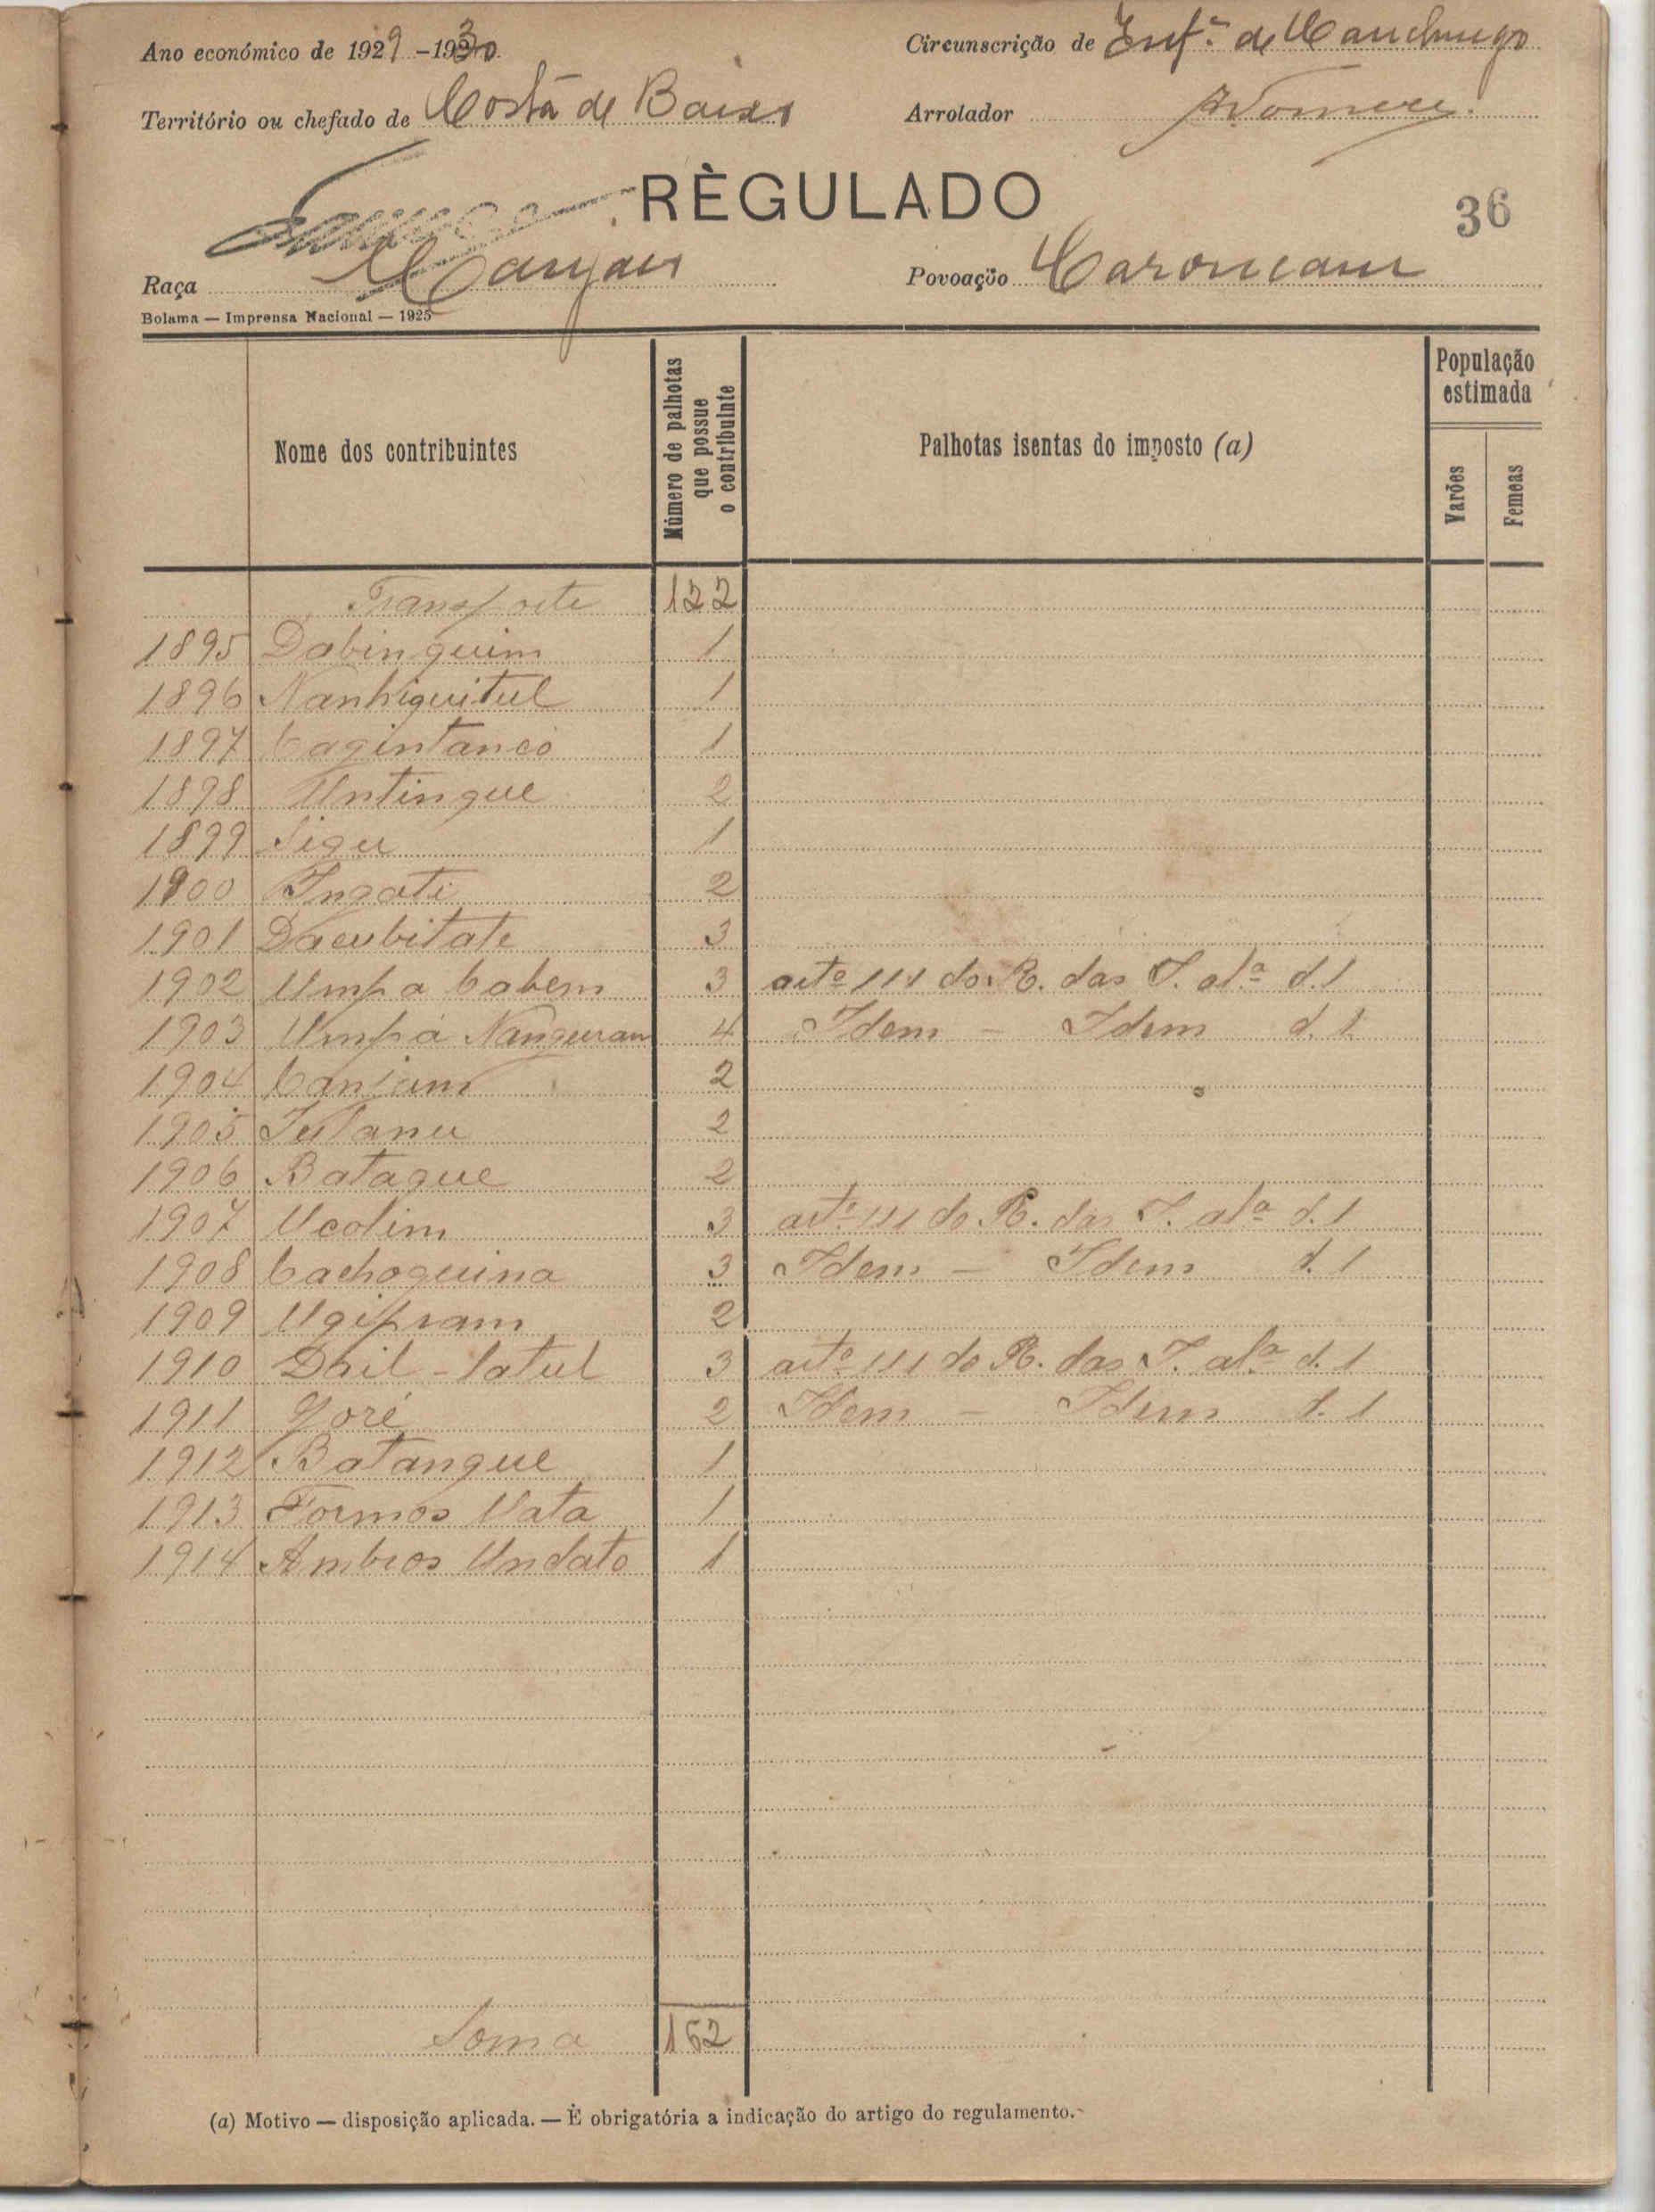 Ano económico de 1929-1930
Circunscrição de Inf.ª de Canchungo
Território ou chefado de Costa de Baixo
Arrolador
RÈGULADO
36
Raça Manjaco
Povoação Caroncam
Bolama — Imprensa Nacional — 1925
Nome dos contribuintes
Número de palhotas que possue o contribuinte
Palhotas isentas do imposto (a)
População estimada
Varões
Femeas
Transporte 122
1895 Dabinquim 1
1896 Nanhiquitul 1
1897 Cagintancó 1
1898 Untinque 2
1899 Sigu 1
1900 Ingati 2
1901 Dacubitate 3
1902 Umpa Cabem 3 artº 111 do R. das I. alª d. 1
1903 Umpá Nanguran 4 Idem - Idem d. 1
1904 Canjam 2
1905 Jutanu 2
1906 Bataque 2
1907 Ucolim 3 artº 111 do R. das I. alª d. 1
1908 Cachoquina 3 Idem - Idem d. 1
1909 Ugipram 2
1910 Dail - Catul 3 artº 111 do R. das I. alª d. 1
1911 Joré 2 Idem - Idem d. 1
1912 Batangue 1
1913 Formos Vata 1
1914 Ambros Undato 1
Soma 162
(a) Motivo — disposição aplicada. — È obrigatória a indicação do artigo do regulamento.